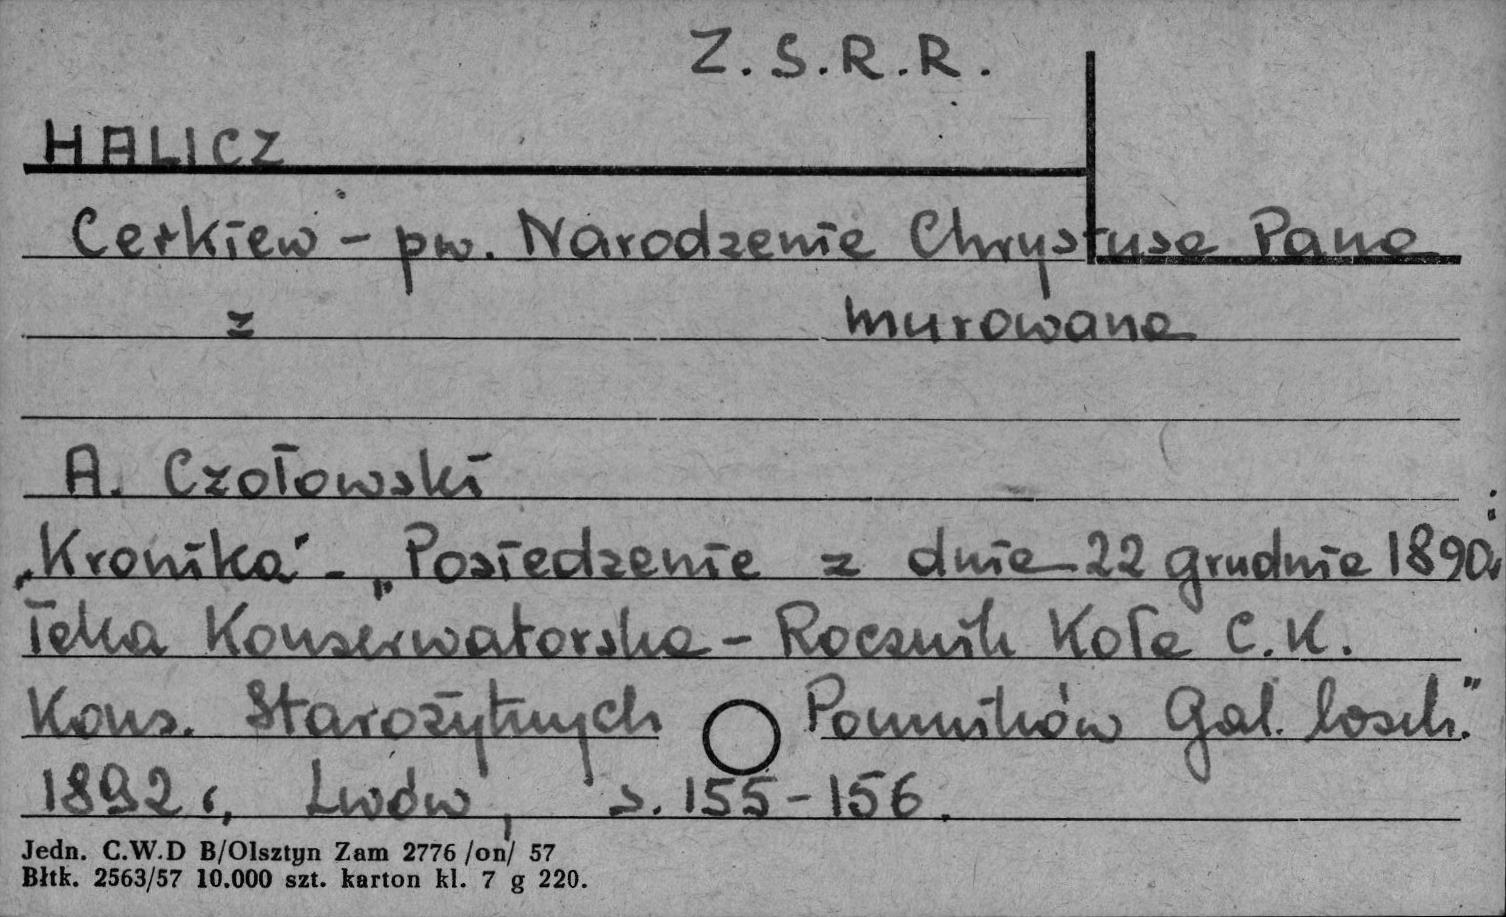 Z.S.R.R.
HALICZ
Cerkiew - pw. Narodzenia Chrystusa Pana
z murowana
A. Czołowski
„Kronika" - „Posiedzenie z dnia 22 grudnia 1890r."
Teka Konserwatorska - Rocznik Koła C.K.
Kons. Starożytnych Pomników Gal. Wsch."
1892 r., Lwów, s. 155-156.
Jedn. C.W.D B/Olsztyn Zam 2776 /on/ 57
Błtk. 2563/57 10.000 szt. karton kl. 7 g 220.